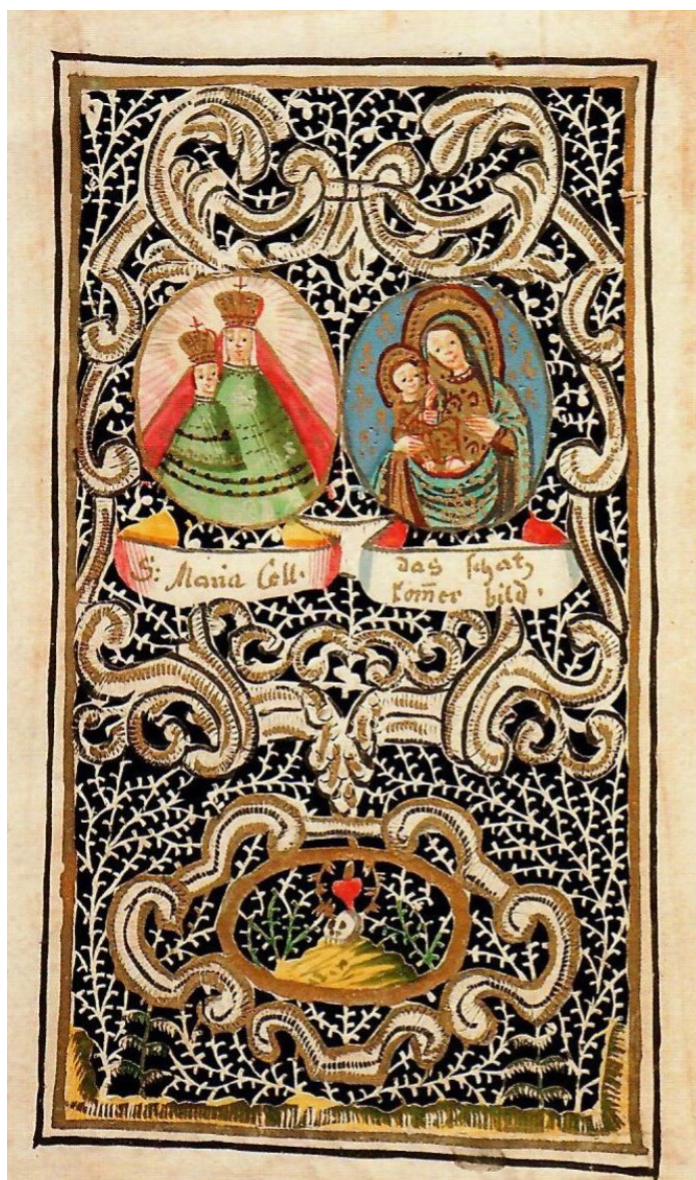 S: Maria Cell.
das schatz
kom̄er bild.